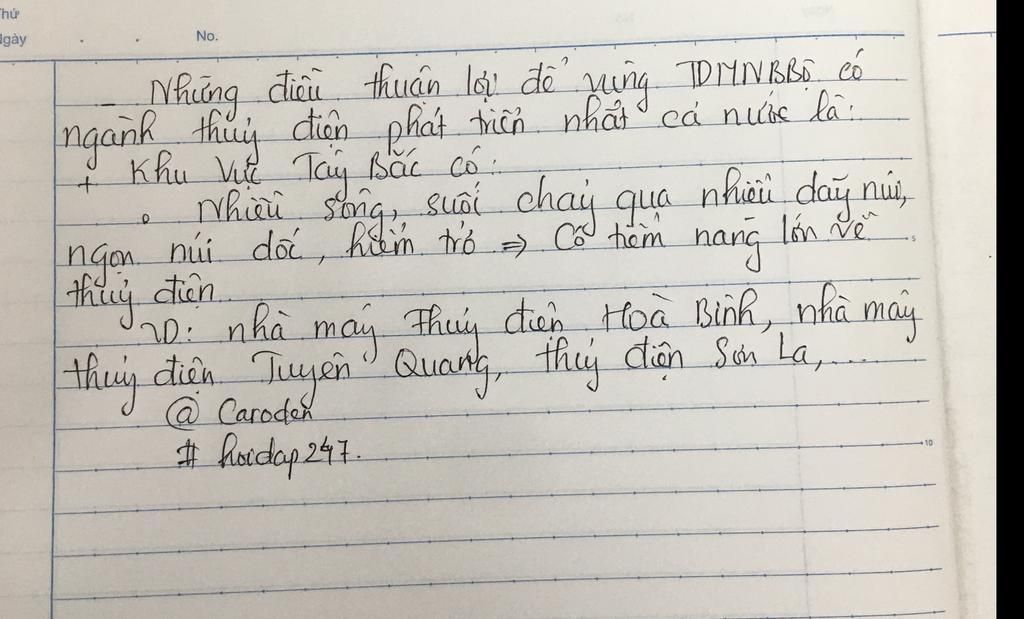 Thứ
Ngày
No.
- Những điều thuận lợi để vùng TDMNBBộ có
ngành thuỷ điện phát triển nhất cả nước là:
+ Khu vực Tây Bắc có:
o Nhiều sông, suối chảy qua nhiều dãy núi,
ngọn núi dốc, hiểm trở => Có tiềm năng lớn về
thuỷ điện
VD: nhà máy Thuỷ điện Hoà Bình, nhà máy
thuỷ điện Tuyên Quang, thuỷ điện Sơn La,...
@ Caroden
# hoidap247.
10